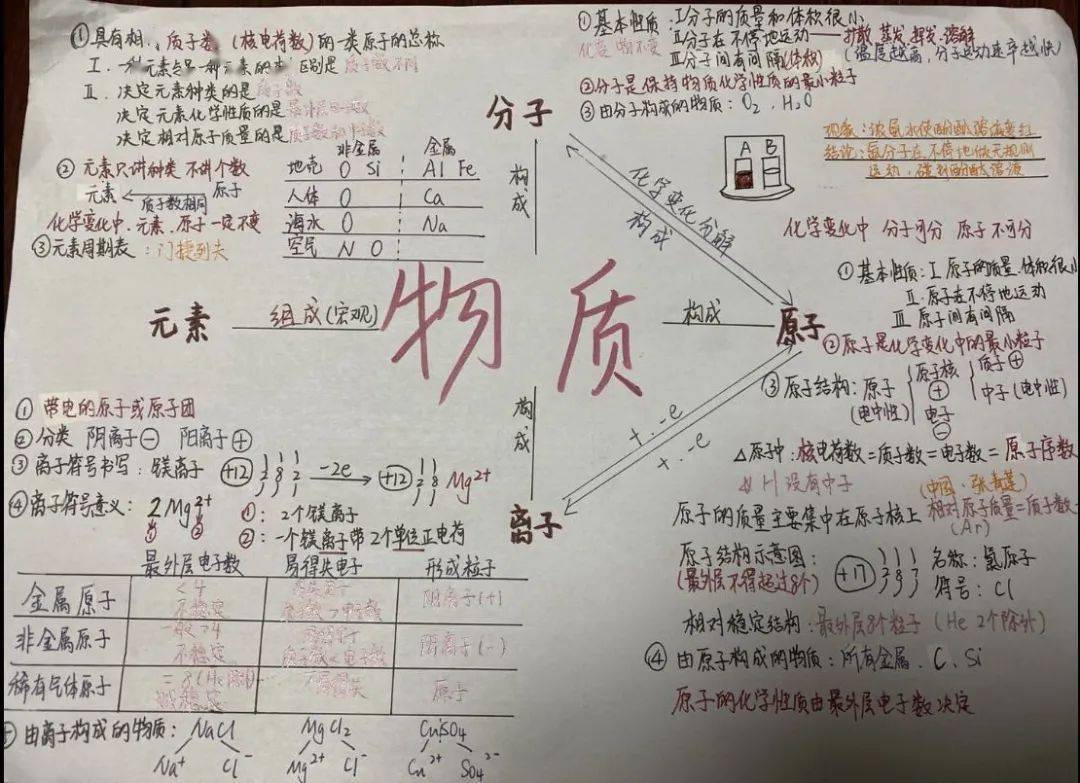 ①具有相 质子类（核电荷数）的一类原子的总称
Ⅰ．一种元素与另一种元素的 区别是质子数不同
Ⅱ．决定元素种类的是质子数
决定元素化学性质的是最外层电子数
决定相对原子质量的是质子数和中子数
②元素只讲种类 不讲个数
元素 ← 原子
质子数相同
化学变化中．元素．原子一定不变
③元素周期表：门捷列夫
非金属 金属
地壳 O Si Al Fe
人体 O Ca
海水 O Na
空气 N O
分子
构成
①基本性质：Ⅰ分子的质量和体积很小
Ⅱ分子在不停地运动——扩散 蒸发 挥发 溶解
化变 物不变
（温度越高，分子运动速率越快）
Ⅲ分子间有间隔（体积）
②分子是保持物质化学性质的最小粒子
③由分子构成的物质：O₂．H₂O
A B
现象：浓氨水使酚酞溶液变红
结论：氨分子在不停地做无规则
运动，碰到酚酞溶液
化学变化分解
构成
化学变化中 分子可分 原子不可分
物质
元素 组成（宏观）
构成 原子
①基本性质：Ⅰ原子的质量．体积很小
Ⅱ．原子在不停地运动
Ⅲ 原子间有间隔
②原子是化学变化中的最小粒子
③原子结构：原子（电中性）
原子核 ⊕
质子⊕
中子（电中性）
电子 ⊖
△原子中：核电荷数=质子数=电子数=原子序数
H 没有中子
（中国·张青莲）
原子的质量主要集中在原子核上 相对原子质量=质子数+
(Ar)
原子结构示意图：
（最外层不得超过8个）
+17 2 8 7
名称：氯原子
符号：Cl
相对稳定结构：最外层8个粒子（He 2个除外）
④由原子构成的物质：所有金属．C．Si
原子的化学性质由最外层电子数决定
+．-e
+．-e
构成
离子
①带电的原子或原子团
②分类 阴离子⊖ 阳离子⊕
③离子符号书写：镁离子 +12 2 8 2 -2e→ +12 2 8 Mg²⁺
④离子符号意义：2Mg²⁺
① ②
①：2个镁离子
②：一个镁离子带2个单位正电荷
最外层电子数 易得失电子 形成粒子
金属原子 <4 不稳定 质子数>电子数 阳离子(+)
非金属原子 一般>4 不稳定 质子数<电子数 阴离子(-)
稀有气体原子 =8(He除外) 稳定 不易得失 原子
由离子构成的物质：NaCl MgCl₂ CuSO₄
Na⁺ Cl⁻ Mg²⁺ Cl⁻ Cu²⁺ SO₄²⁻